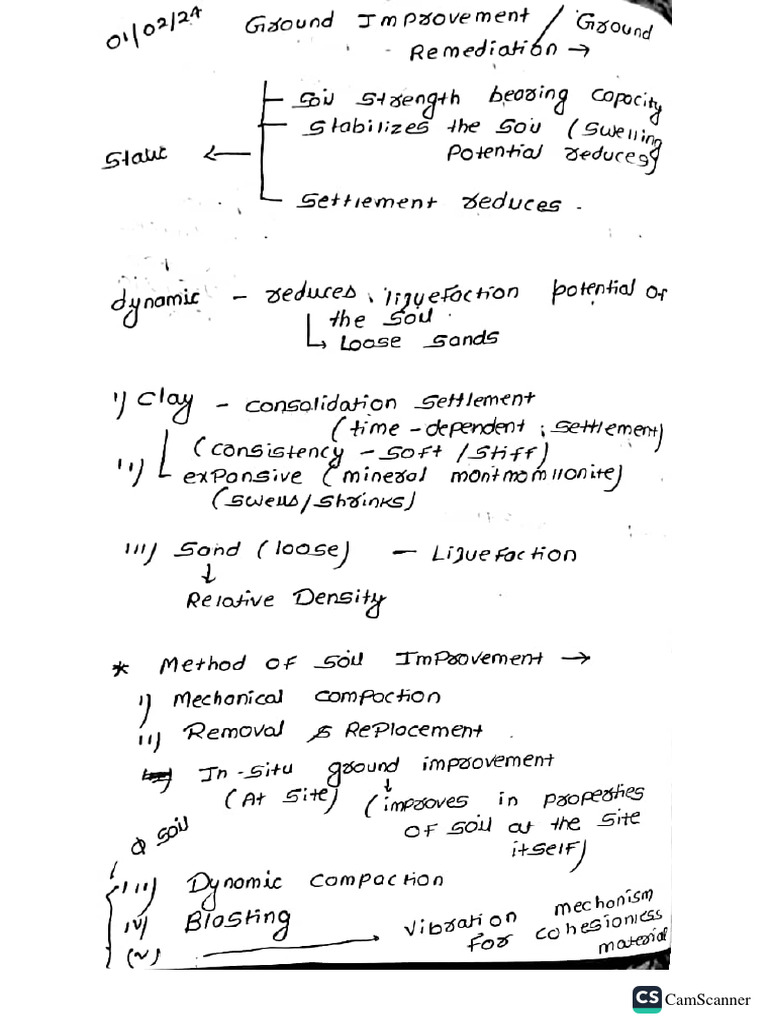 01/02/24 Ground Improvement / Ground
Remediation →
Soil strength bearing capacity
Stabilizes the soil (swelling
Static ← potential reduces)
Settlement reduces.
dynamic - reduces liquefaction potential of
the soil.
↳ Loose sands
i) Clay - consolidation settlement
(time-dependent settlement)
(consistency - soft/stiff)
ii) expansive (mineral montmorillonite)
(swells/shrinks)
iii) Sand (loose) - Liquefaction
↓
Relative Density
* Method of soil Improvement →
i) Mechanical compaction
ii) Removal & Replacement.
In-situ ground improvement
(At site) (improves in properties
of soil at the site
itself)
soil
iii) Dynamic compaction
iv) Blasting
(v) → vibration mechanism
for cohesionless
material
CS CamScanner